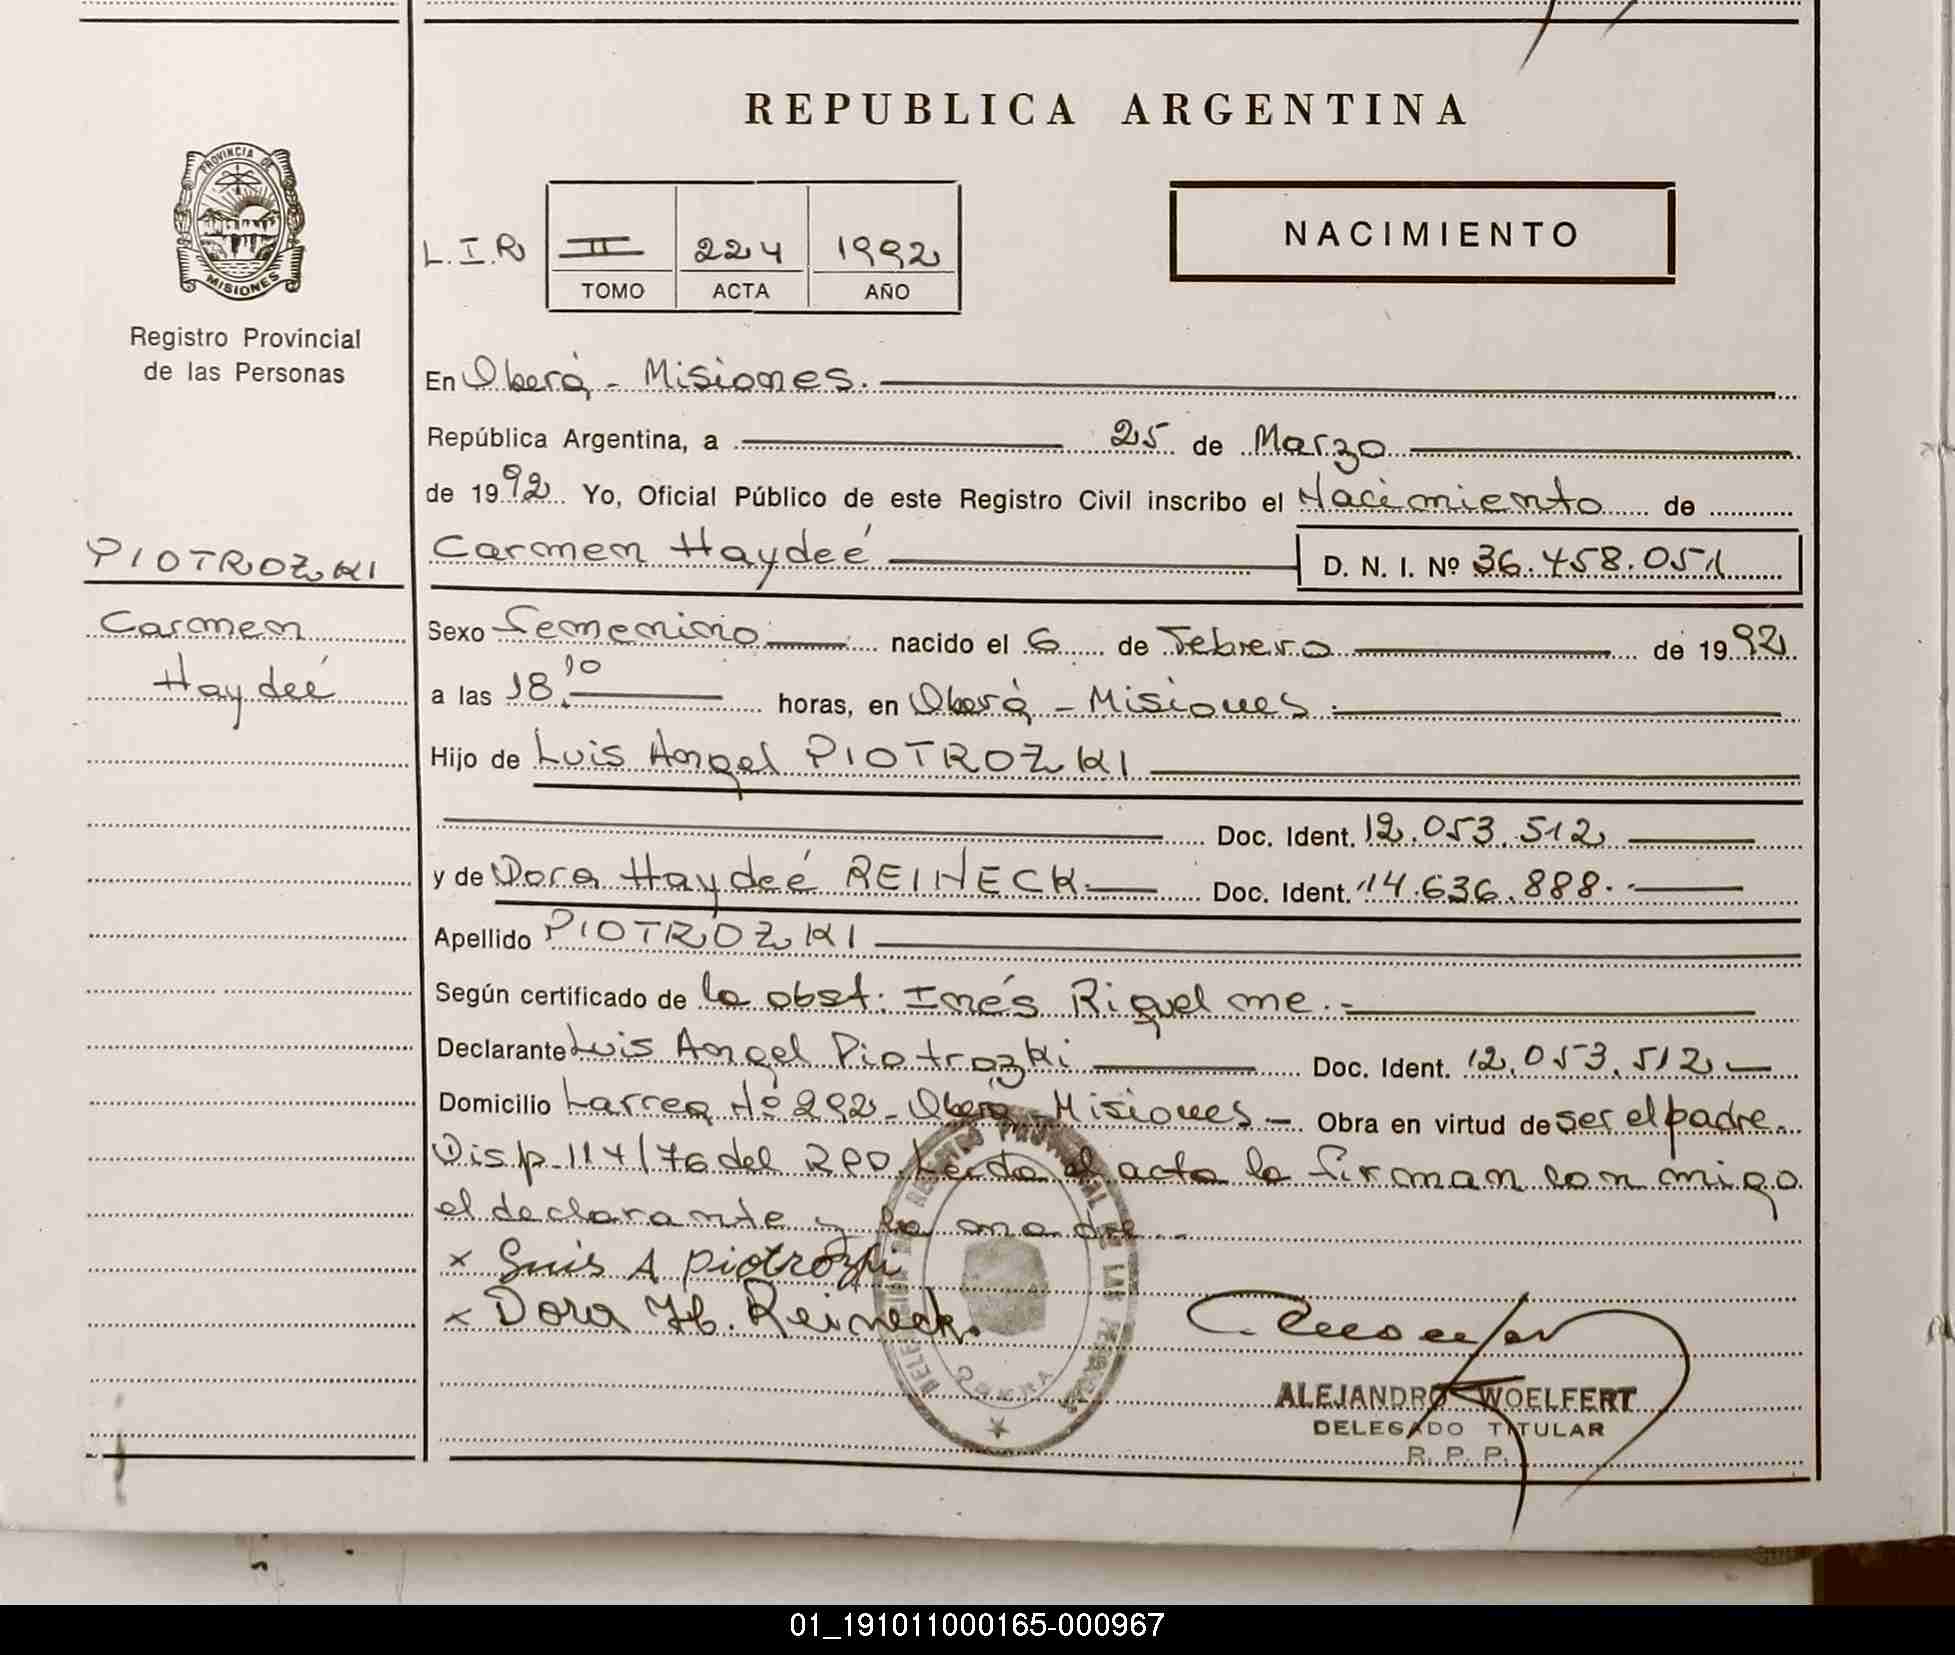 REPUBLICA ARGENTINA
PROVINCIA DE
MISIONES
Registro Provincial
de las Personas
L.I.R
II 224 1992
TOMO ACTA AÑO
NACIMIENTO
En Oberá - Misiones.
República Argentina, a 25 de Marzo
de 1992 Yo, Oficial Público de este Registro Civil inscribo el Nacimiento de
PIOTROZKI
Carmen Haydeé D. N. I. Nº 36.458.051
Carmen
Haydeé
Sexo femenino nacido el 6 de Febrero de 1992
a las 18.10 horas, en Oberá - Misiones.
Hijo de Luis Angel PIOTROZKI
Doc. Ident. 12.053.512
y de Dora Haydeé REINECK. Doc. Ident. 14.636.888.-
Apellido PIOTROZKI
Según certificado de la obst. Inés Riquelme.-
Declarante Luis Angel Piotrozki Doc. Ident. 12.053.512
Domicilio Larrea Nº 292 - Oberá - Misiones - Obra en virtud de ser el padre.
Disp. 114/76 del RPO. Leída el acta la firman conmigo
el declarante y la madre.-
x Luis A Piotrozki
x Dora H. Reineck.
DELEGACION REGISTRO PROVINCIAL DE LAS PERSONAS
OBERA
ALEJANDRO WOELFERT
DELEGADO TITULAR
R. P. P.
01_191011000165-000967